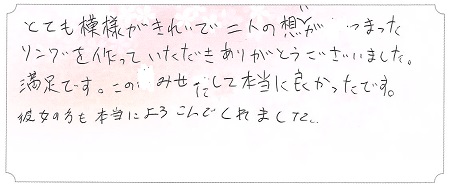 とても模様がきれいで二人の想いがつまった
リングを作っていただきありがとうございました。
満足です。このみせにして本当に良かったです。
彼女の方も本当によろこんでくれました。